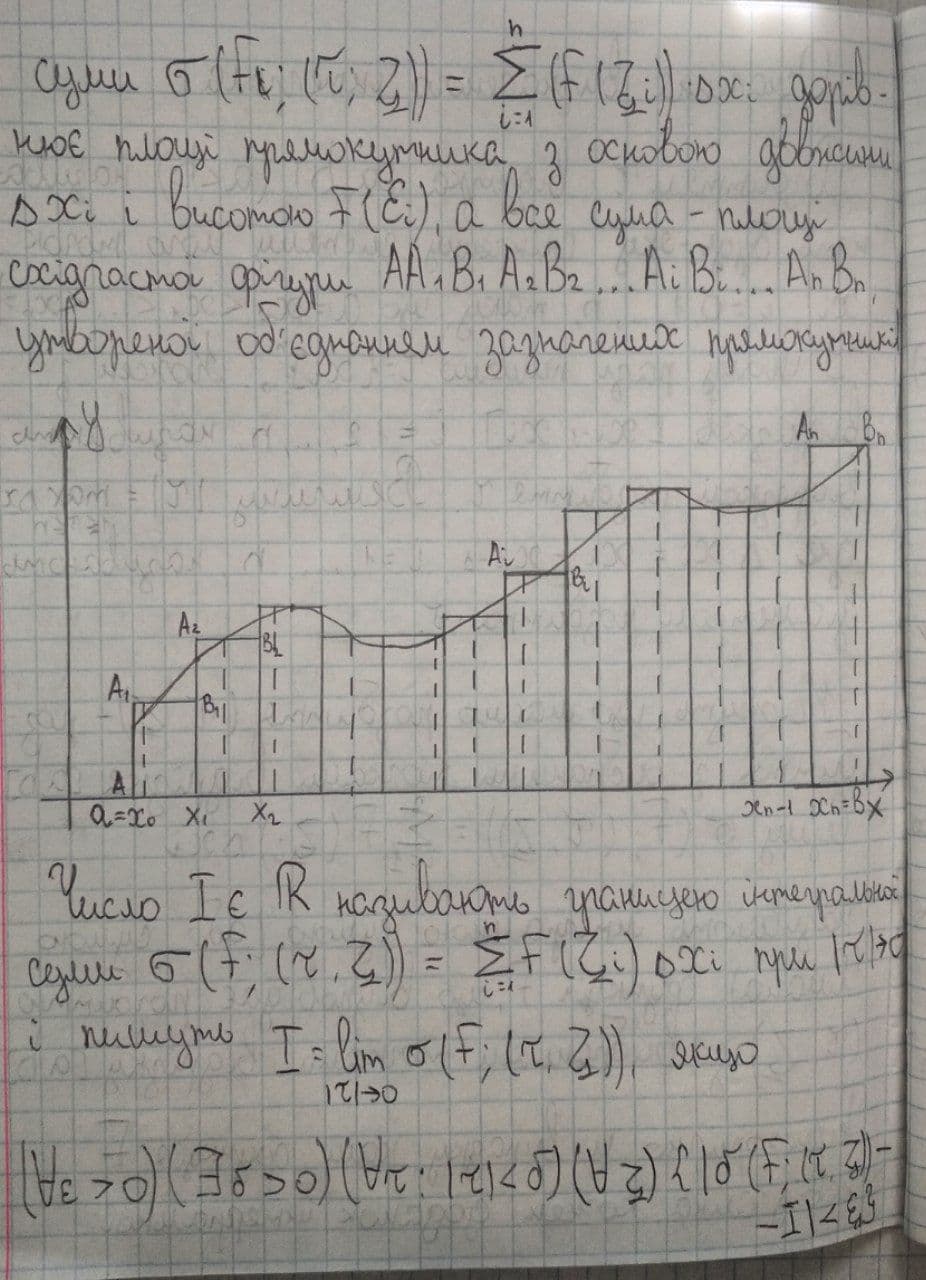 суми σ(fi; (τ; ξ)) = n∑i=1 (f(ξi))·Δxi дорів-
нює площі прямокутника з основою довжини
Δxi і висотою f(ξi), а вся сума - площі
східчастої фігури AA₁B₁A₂B₂...AiBi...AnBn,
утвореної об'єднанням зазначених прямокутників
y
An Bn
Ai Bi
A₂ B₂
A₁ B₁
A
a=x₀ x₁ x₂ xn-1 xn=b x
Число I є ℝ називають границею інтегральної
суми σ(f; (τ, ξ)) = n∑i=1 f(ξi)Δxi при |τ|→0
і пишуть I = lim|τ|→0 σ(f; (τ, ξ)), якщо
(∀ε>0)(∃δ>0)(∀τ: |τ|<δ)(∀ξ){|σ(f; (τ, ξ))-
-I|<ε}